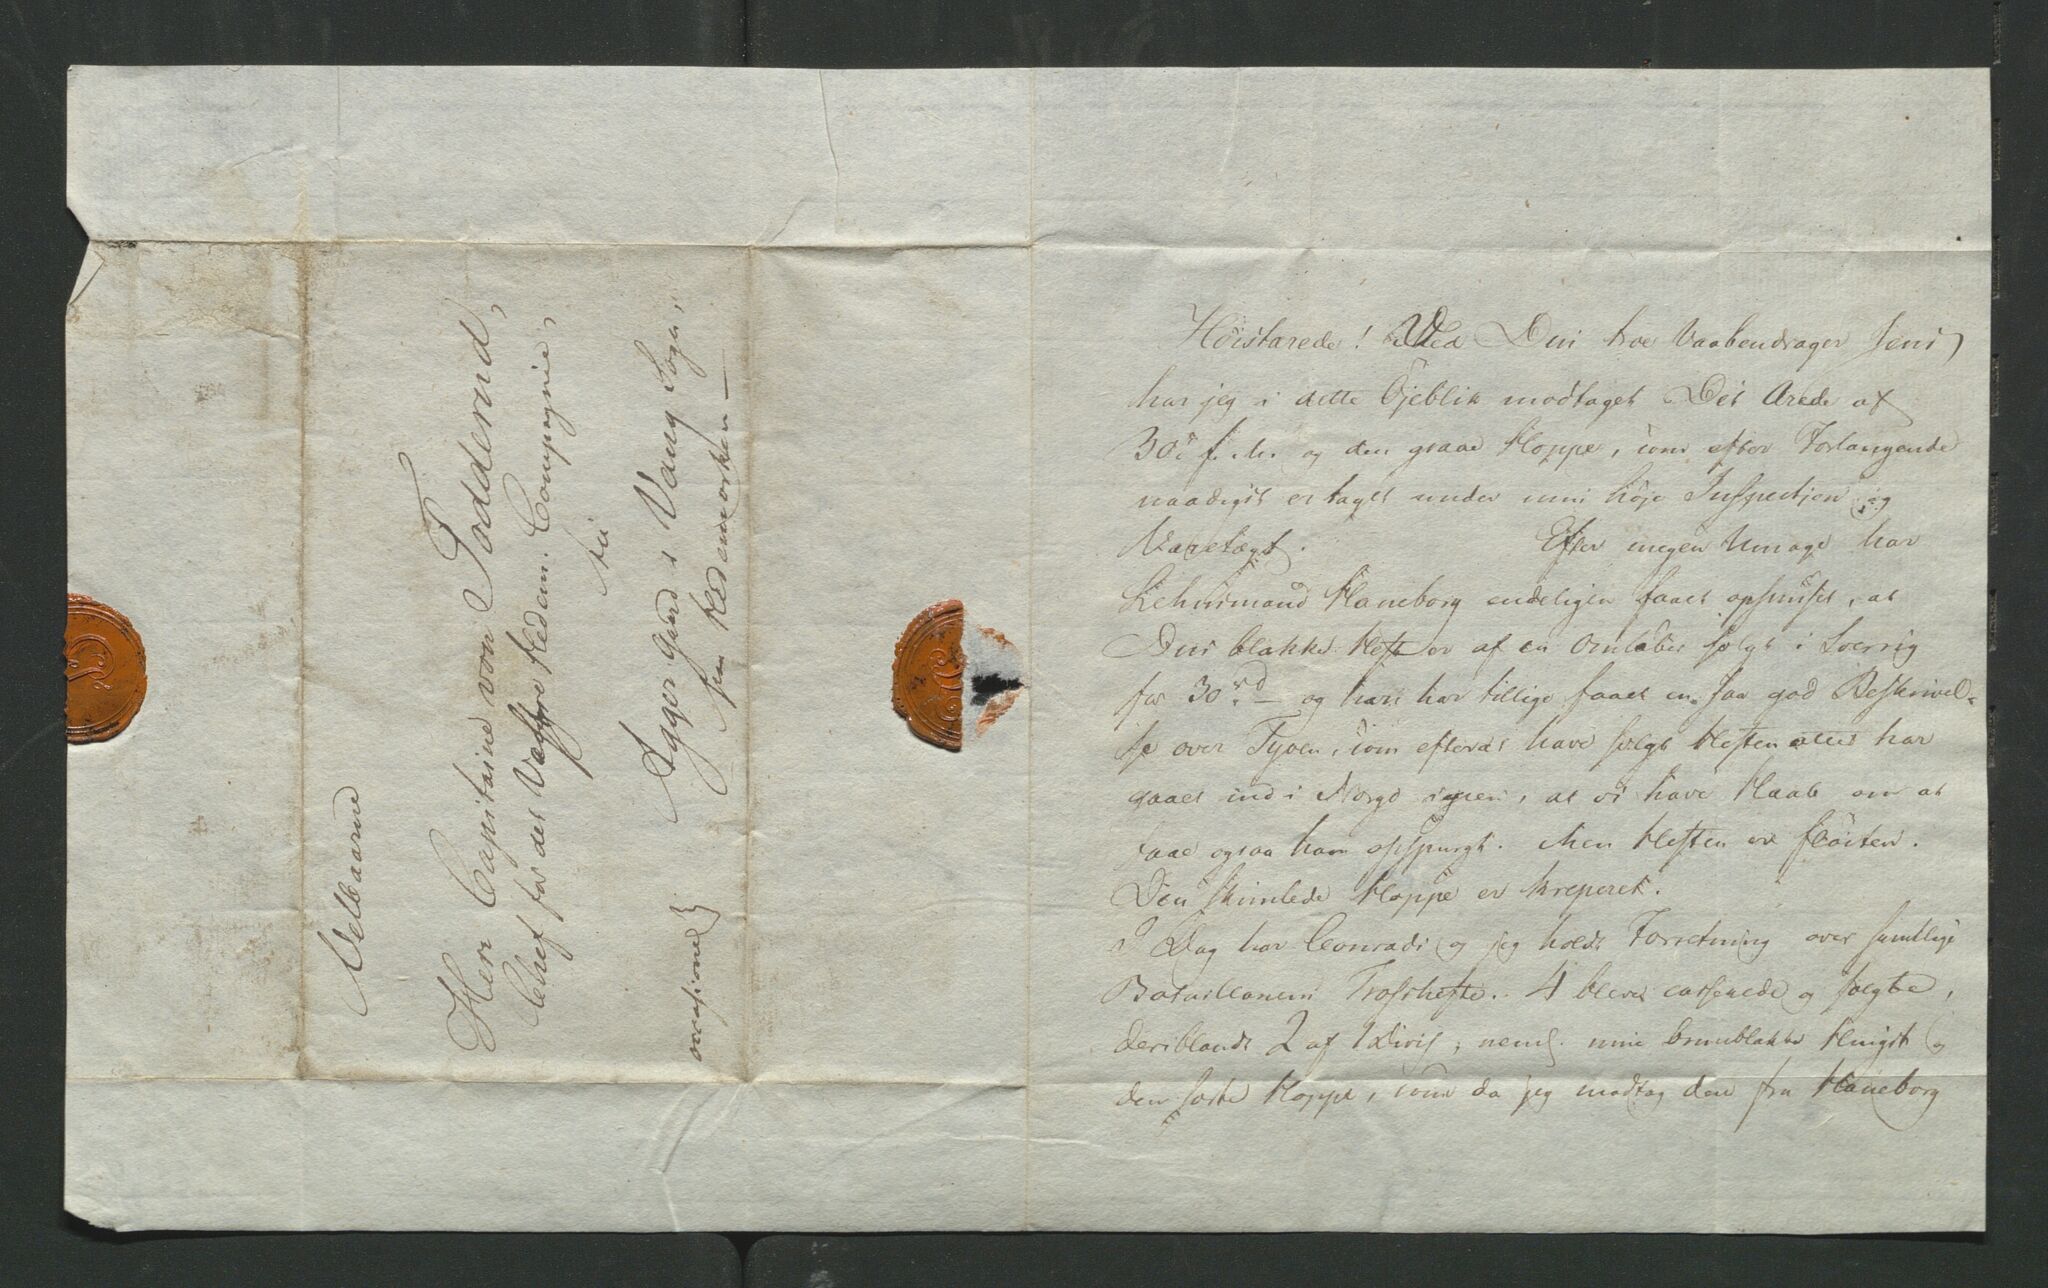 Velbaarne
Herr Capitaine von Todderud,
Chef for det Vaffpre Hedem. Compagnie,
til
Agger Gaard i Vang Sogn,
paa Hedemarken —
occasione
Høistærede! Ved Din troe Vaabendrager Jens
har jeg i dette Öjeblik modtaget Dit Ærede af
30te f. M. og den graae Hoppe, som efter Forlangende
naadigst er taget under min höje Inspection og
Varetægt. Efter megen Umage har
Lehnsmand Haneborg endeligen faaet opsnuset, at
Din blakke Hest er af en Omløber solgt i Sverrig
for 30 rd — og han har tillige faaet en saa god Beskrivel-
se over Tyven, som efterat have solgt Hesten atter har
gaaet ind i Norge igjen, at vi have Haab om at
faae ogsaa ham opspurgt. Men Hesten er fløiten.
Den skimlede Hoppe er kreperet.
I Dag har Conradi og jeg holdt Forretning over samtlige
Bataillonens Trosheste. 4 bleve casserede og solgte,
deriblandt 2 af 1 Divis, neml. min brunblakke Hingst og
den sorte Hoppe, som da jeg modtog den fra Haneborg